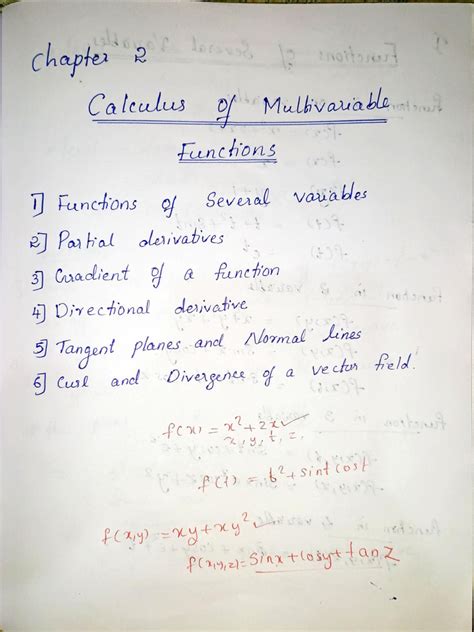 Chapter 2
Calculus of Multivariable
Functions
1] Functions of Several variables
2] Partial derivatives
3] Gradient of a function
4] Directional derivative
5] Tangent planes and Normal lines
6] Curl and Divergence of a vector field.
f(x) = x² + 2x ✓
x, y, t, z.
f(t) = t² + sint cost
f(x,y) = xy + xy² ✓
f(x,y,z) = sinx + cosy + tanz